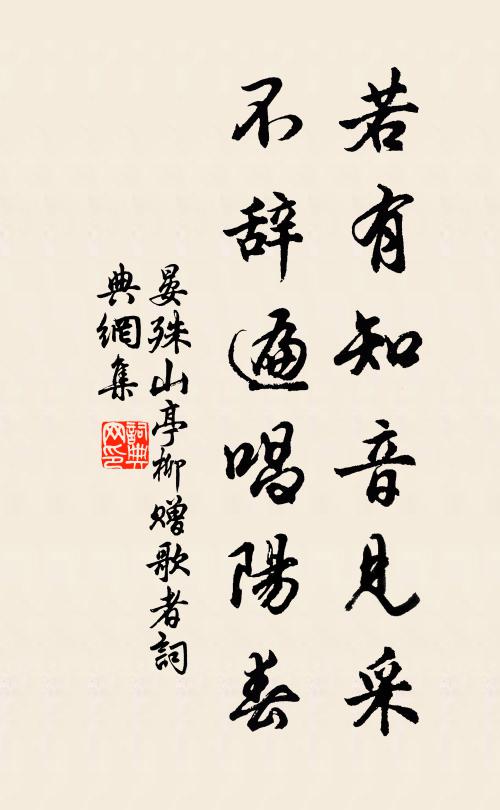 若有知音見采
不辞遍唱陽春
晏殊山亭柳赠歌者詞
典網集
詞典網印